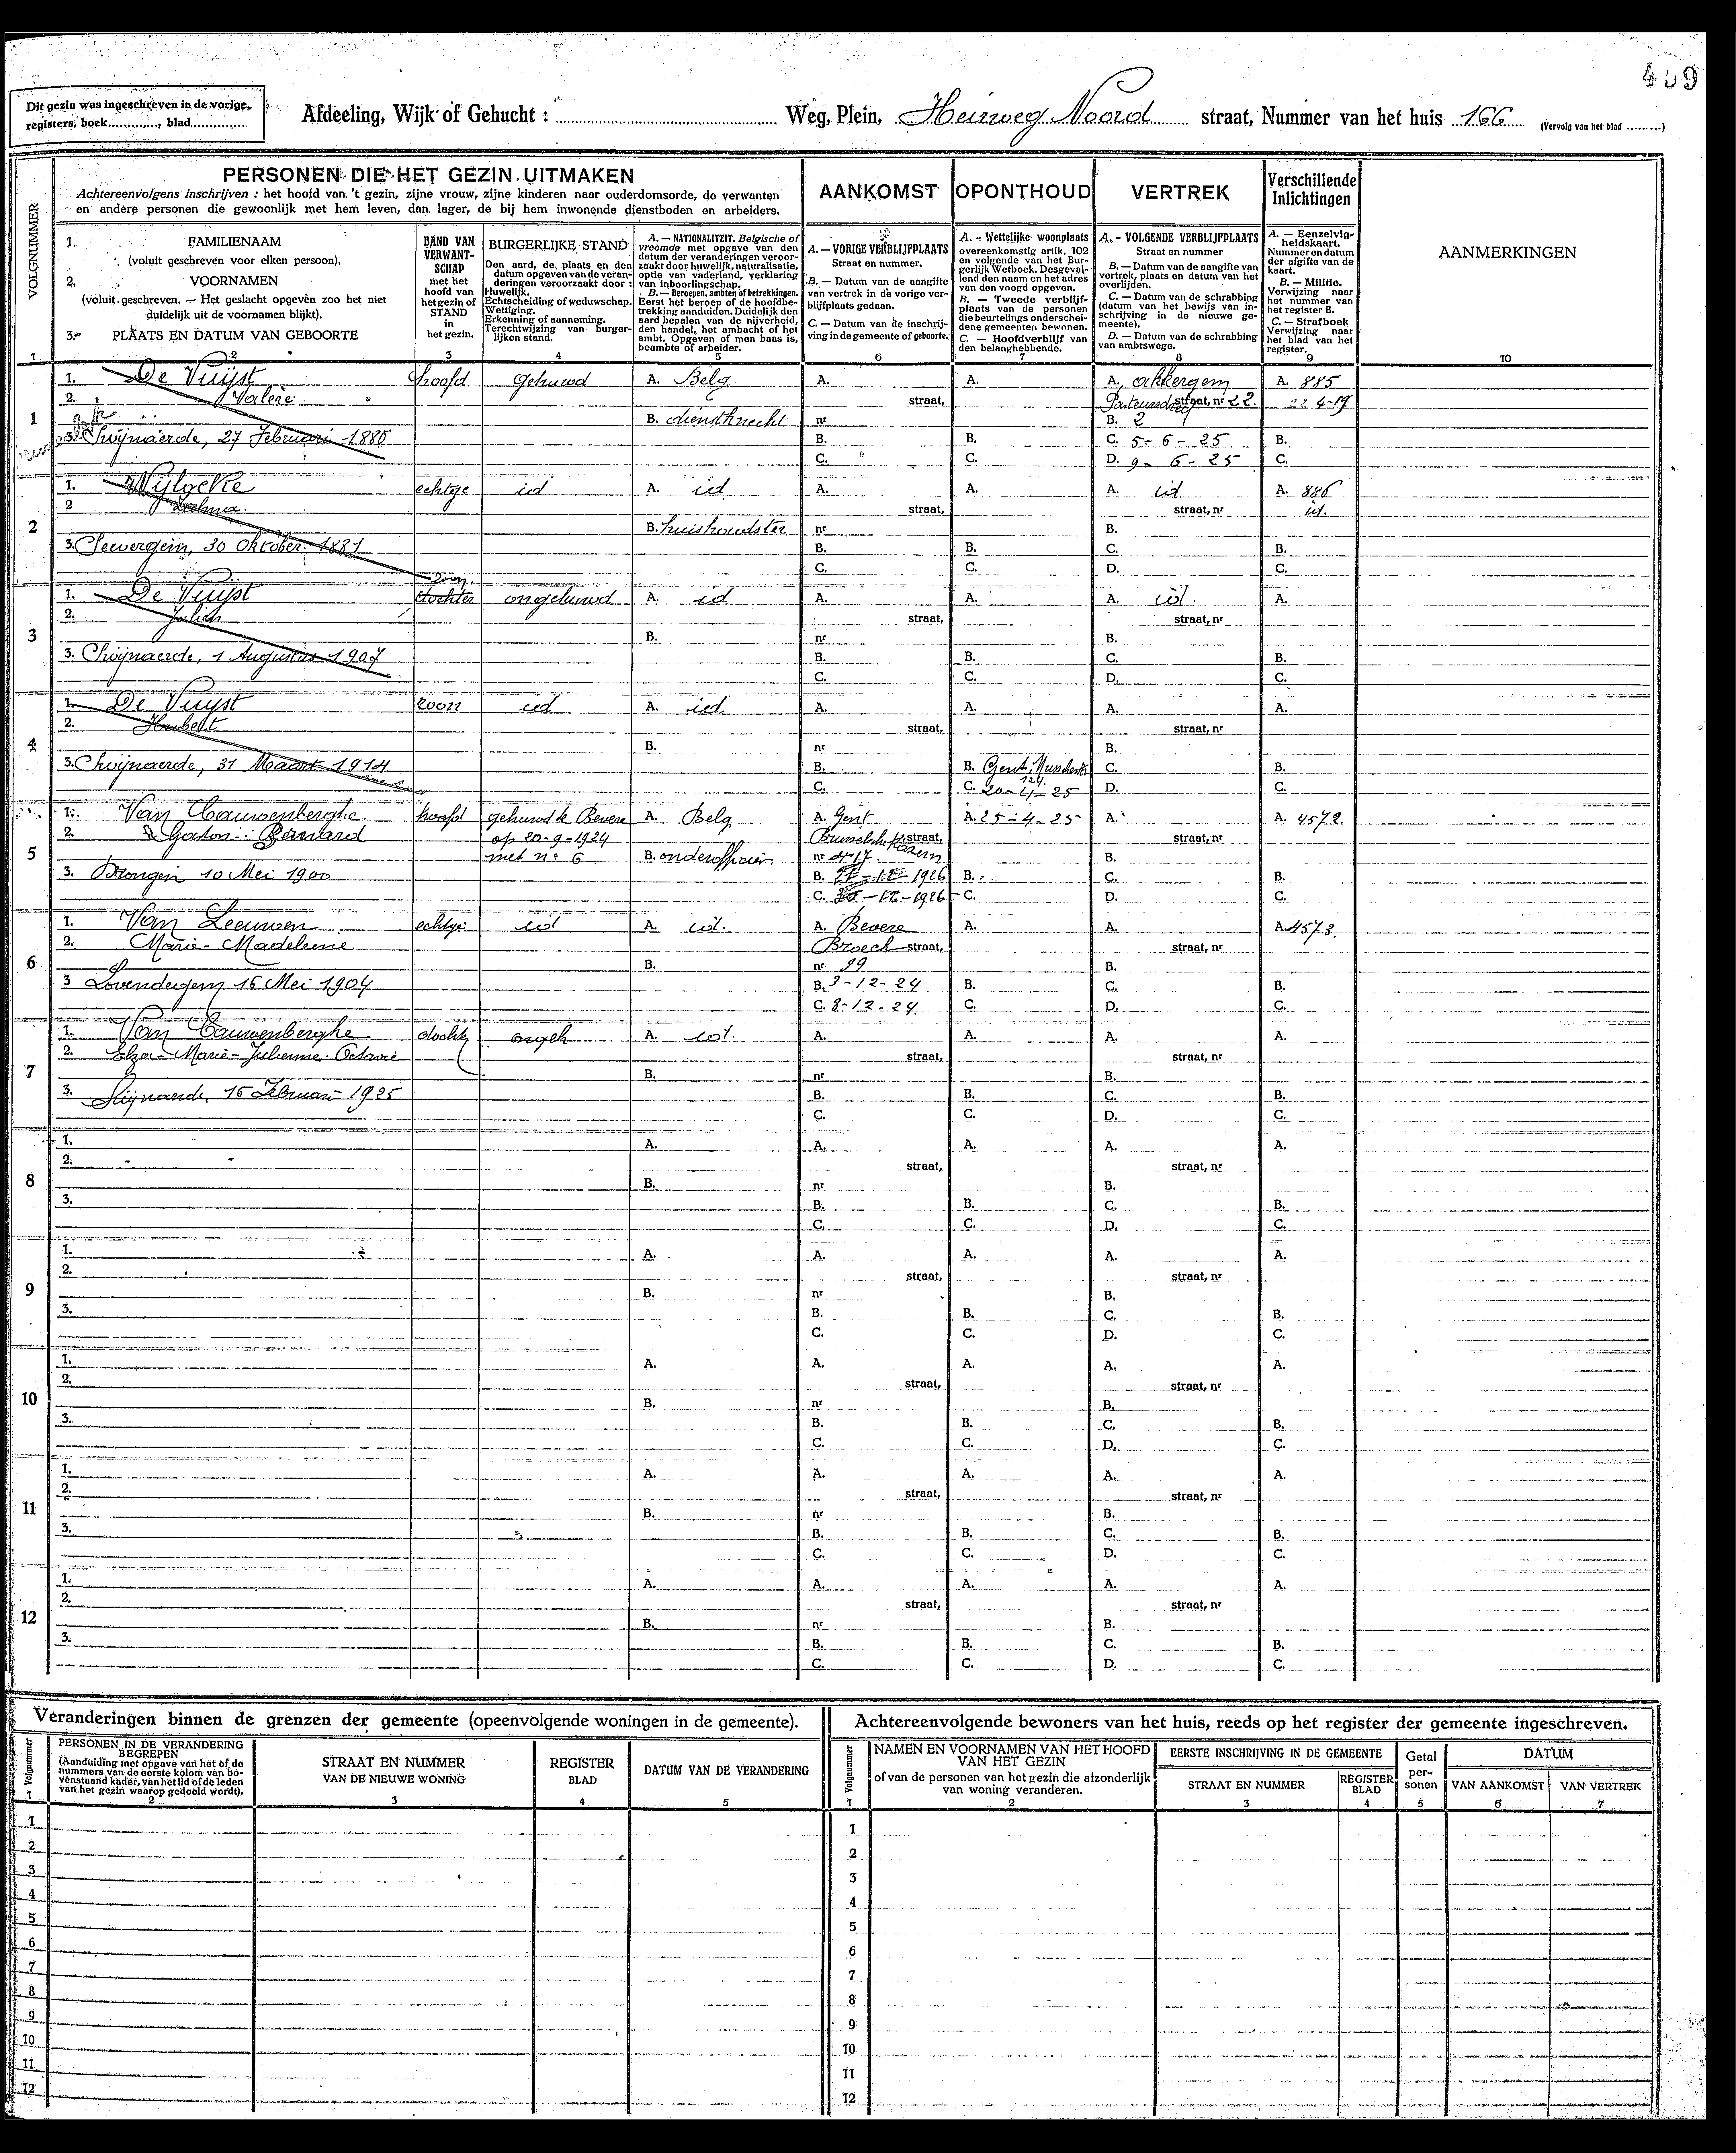 409
Dit gezin was ingeschreven in de vorige
registers, boek............, blad..............
Afdeeling, Wijk of Gehucht : .......... Weg, Plein, Heirweg Noord straat, Nummer van het huis 166 (Vervolg van het blad .........)
PERSONEN DIE HET GEZIN UITMAKEN
Achtereenvolgens inschrijven : het hoofd van 't gezin, zijne vrouw, zijne kinderen naar ouderdomsorde, de verwanten
en andere personen die gewoonlijk met hem leven, dan lager, de bij hem inwonende dienstboden en arbeiders.
AANKOMST
OPONTHOUD
VERTREK
Verschillende
Inlichtingen
VOLGNUMMER
1
1. FAMILIENAAM
(voluit geschreven voor elken persoon),
2. VOORNAMEN
(voluit geschreven. — Het geslacht opgeven zoo het niet
duidelijk uit de voornamen blijkt).
3. PLAATS EN DATUM VAN GEBOORTE
2
BAND VAN
VERWANT-
SCHAP
met het
hoofd van
het gezin of
STAND
in
het gezin.
3
BURGERLIJKE STAND
Den aard, de plaats en den
datum opgeven van de veran-
deringen veroorzaakt door :
Huwelijk.
Echtscheiding of weduwschap.
Wettiging.
Erkenning of aanneming.
Terechtwijzing van burger-
lijken stand.
4
A. — NATIONALITEIT. Belgische of
vreemde met opgave van den
datum der veranderingen veroor-
zaakt door huwelijk, naturalisatie,
optie van vaderland, verklaring
van inboorlingschap.
B. — Beroepen, ambten of betrekkingen.
Eerst het beroep of de hoofdbe-
trekking aanduiden. Duidelijk den
aard bepalen van de nijverheid,
den handel, het ambacht of het
ambt. Opgeven of men baas is,
beambte of arbeider.
5
A. — VORIGE VERBLIJFPLAATS
Straat en nummer.
B. — Datum van de aangifte
van vertrek in de vorige ver-
blijfplaats gedaan.
C. — Datum van de inschrij-
ving in de gemeente of geboorte.
6
A. - Wettelijke woonplaats
overeenkomstig artik. 102
en volgende van het Bur-
gerlijk Wetboek. Desgeval-
lend den naam en het adres
van den voogd opgeven.
B. — Tweede verblijf-
plaats van de personen
die beurtelings onderschei-
dene gemeenten bewonen.
C. — Hoofdverblijf van
den belanghebbende.
7
A. - VOLGENDE VERBLIJFPLAATS
Straat en nummer
B. — Datum van de aangifte van
vertrek, plaats en datum van het
overlijden.
C. — Datum van de schrabbing
(datum van het bewijs van in-
schrijving in de nieuwe ge-
meente).
D. — Datum van de schrabbing
van ambtswege.
8
A. — Eenzelvig-
heidskaart.
Nummer en datum
der afgifte van de
kaart.
B. — Militie.
Verwijzing naar
het nummer van
het register B.
C. — Strafboek
Verwijzing naar
het blad van het
register.
9
AANMERKINGEN
10
1. De Vuijst hoofd gehuwd A. Belg A. A. A. Akkergem A. 885
2. Valère straat, straat, nr 22. 22 4-19
1 B. dienstknecht nr B. 2
3. Swijnaerde, 27 Februari 1880 B. B. C. 5-6-25 B.
C. C. D. 9-6-25 C.
1. Wijlocke echtge id A. id A. A. A. id A. 886
2 straat, straat, nr id.
2 B. huishoudster nr B.
3. Seevergem, 30 Oktober 1881 B. B. C. B.
C. C. D. C.
zoon
1. De Vuijst dochter ongehuwd A. id A. A. A. id. A.
2. Julien straat, straat, nr
3 B. nr B.
3. Swijnaerde, 1 Augustus 1907 B. B. C. B.
C. C. D. C.
1. De Vuijst zoon id A. id A. A. A. A.
2. Hubert straat, straat, nr
4 B. nr B.
3. Swijnaerde, 31 Maart 1914 B. B. Gent, C. B.
124
C. C. 20-4-25 D. C.
1. Van Cauwenberghe hoofd gehuwd te Bevere A. Belg A. Gent A. 25-4-25 A. A. 4572
2. Gaston Bernard op 20-9-1924 straat, straat, nr
5 met n° 6 B. onderofficier nr B.
3. Drongen 10 Mei 1900 B. 1926 B. C. B.
C. 1926 C. D. C.
1. Van Leeuwen echtge id A. id. A. Bevere A. A. A. 4573
2. Marie-Madeleine Broeck straat, straat, nr
6 B. nr 99 B.
3 Lovendegem 16 Mei 1904 B. 3-12-24 B. C. B.
C. 8-12-24 C. D. C.
1. Van Cauwenberghe dochter ongeh A. id. A. A. A. A.
2. Elza-Marie-Julienne-Octavie straat, straat, nr
7 B. nr B.
3. Swijnaerde 15 Februari 1925 B. B. C. B.
C. C. D. C.
1. A. A. A. A. A.
2. straat, straat, nr
8 B. nr B.
3. B. B. C. B.
C. C. D. C.
1. A. A. A. A. A.
2. straat, straat, nr
9 B. nr B.
3. B. B. C. B.
C. C. D. C.
1. A. A. A. A. A.
2. straat, straat, nr
10 B. nr B.
3. B. B. C. B.
C. C. D. C.
1. A. A. A. A. A.
2. straat, straat, nr
11 B. nr B.
3. B. B. C. B.
C. C. D. C.
1. A. A. A. A. A.
2. straat, straat, nr
12 B. nr B.
3. B. B. C. B.
C. C. D. C.
Veranderingen binnen de grenzen der gemeente (opeenvolgende woningen in de gemeente).
Volgnummer
1
PERSONEN IN DE VERANDERING
BEGREPEN
(Aanduiding met opgave van het of de
nummers van de eerste kolom van bo-
venstaand kader, van het lid of de leden
van het gezin waarop gedoeld wordt).
2
STRAAT EN NUMMER
VAN DE NIEUWE WONING
3
REGISTER
BLAD
4
DATUM VAN DE VERANDERING
5
1
2
3
4
5
6
7
8
9
10
11
12
Achtereenvolgende bewoners van het huis, reeds op het register der gemeente ingeschreven.
Volgnummer
1
NAMEN EN VOORNAMEN VAN HET HOOFD
VAN HET GEZIN
of van de personen van het gezin die afzonderlijk
van woning veranderen.
2
EERSTE INSCHRIJVING IN DE GEMEENTE
STRAAT EN NUMMER
3
REGISTER
BLAD
4
Getal
per-
sonen
5
DATUM
VAN AANKOMST
6
VAN VERTREK
7
1
2
3
4
5
6
7
8
9
10
11
12